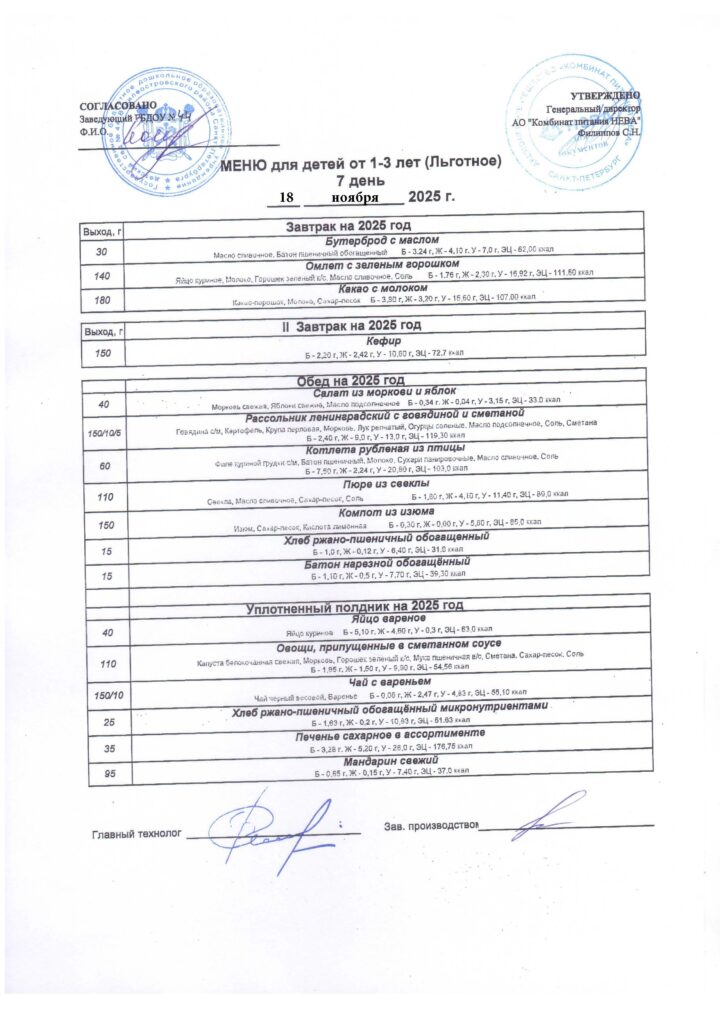 СОГЛАСОВАНО
Заведующий ГБДОУ № 44
Ф.И.О.
УТВЕРЖДЕНО
Генеральный директор
АО "Комбинат питания НЕВА"
Филиппов С.Н.
МЕНЮ для детей от 1-3 лет (Льготное)
7 день
18 ноября 2025 г.
Выход, г Завтрак на 2025 год
Бутерброд с маслом
30 Масло сливочное, Батон пшеничный обогащенный Б - 3,24 г, Ж - 4,10 г, У - 7,0 г, ЭЦ - 62,00 ккал
Омлет с зеленым горошком
140 Яйцо куриное, Молоко, Горошек зеленый к/с, Масло сливочное, Соль Б - 1,76 г, Ж - 2,30 г, У - 16,92 г, ЭЦ - 111,60 ккал
Какао с молоком
180 Какао-порошок, Молоко, Сахар-песок Б - 3,80 г, Ж - 3,20 г, У - 15,60 г, ЭЦ - 107,00 ккал
Выход, г II Завтрак на 2025 год
Кефир
150 Б - 2,20 г, Ж - 2,42 г, У - 10,60 г, ЭЦ - 72,7 ккал
Обед на 2025 год
Салат из моркови и яблок
40 Морковь свежая, Яблоки свежие, Масло подсолнечное Б - 0,34 г, Ж - 0,04 г, У - 3,15 г, ЭЦ - 33,0 ккал
Рассольник ленинградский с говядиной и сметаной
150/10/5 Говядина с/м, Картофель, Крупа перловая, Морковь, Лук репчатый, Огурцы соленые, Масло подсолнечное, Соль, Сметана
Б - 2,40 г, Ж - 9,0 г, У - 13,0 г, ЭЦ - 119,30 ккал
Котлета рубленая из птицы
60 Филе куриной грудки с/м, Батон пшеничный, Молоко, Сухари панировочные, Масло сливочное, Соль
Б - 7,50 г, Ж - 2,24 г, У - 20,80 г, ЭЦ - 103,0 ккал
Пюре из свеклы
110 Свекла, Масло сливочное, Сахар-песок, Соль Б - 1,60 г, Ж - 4,10 г, У - 11,40 г, ЭЦ - 89,0 ккал
Компот из изюма
150 Изюм, Сахар-песок, Кислота лимонная Б - 0,30 г, Ж - 0,00 г, У - 5,60 г, ЭЦ - 65,0 ккал
Хлеб ржано-пшеничный обогащенный
15 Б - 1,0 г, Ж - 0,12 г, У - 6,40 г, ЭЦ - 31,0 ккал
Батон нарезной обогащённый
15 Б - 1,10 г, Ж - 0,5 г, У - 7,70 г, ЭЦ - 39,30 ккал
Уплотненный полдник на 2025 год
Яйцо вареное
40 Яйцо куриное Б - 5,10 г, Ж - 4,60 г, У - 0,3 г, ЭЦ - 63,0 ккал
Овощи, припущенные в сметанном соусе
110 Капуста белокочанная свежая, Морковь, Горошек зеленый к/с, Мука пшеничная в/с, Сметана, Сахар-песок, Соль
Б - 1,95 г, Ж - 1,50 г, У - 9,90 г, ЭЦ - 54,56 ккал
Чай с вареньем
150/10 Чай черный весовой, Варенье Б - 0,06 г, Ж - 2,47 г, У - 4,83 г, ЭЦ - 55,10 ккал
Хлеб ржано-пшеничный обогащённый микронутриентами
25 Б - 1,63 г, Ж - 0,2 г, У - 10,63 г, ЭЦ - 51,63 ккал
Печенье сахарное в ассортименте
35 Б - 3,28 г, Ж - 5,20 г, У - 26,0 г, ЭЦ - 176,75 ккал
Мандарин свежий
95 Б - 0,65 г, Ж - 0,15 г, У - 7,40 г, ЭЦ - 37,0 ккал
Главный технолог
Зав. производством